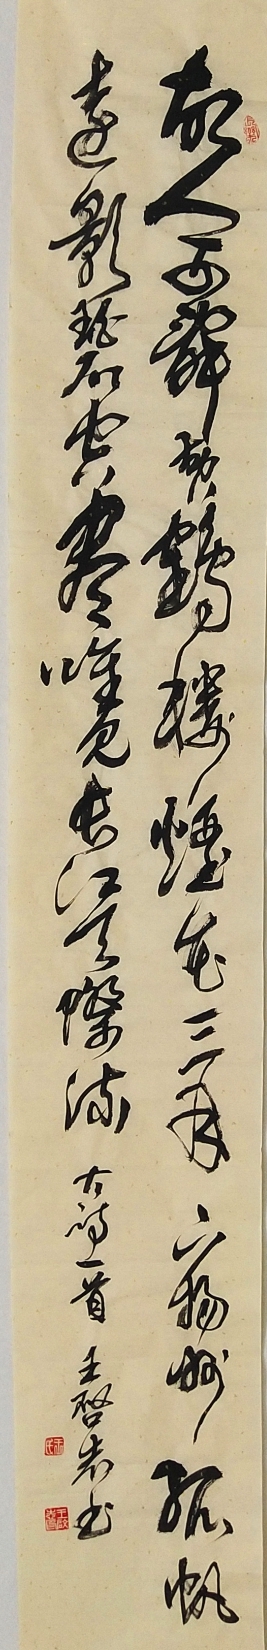 故人西辞黄鹤楼烟花三月下扬州孤帆
远影碧空尽唯见长江天际流
古诗一首 王启
书